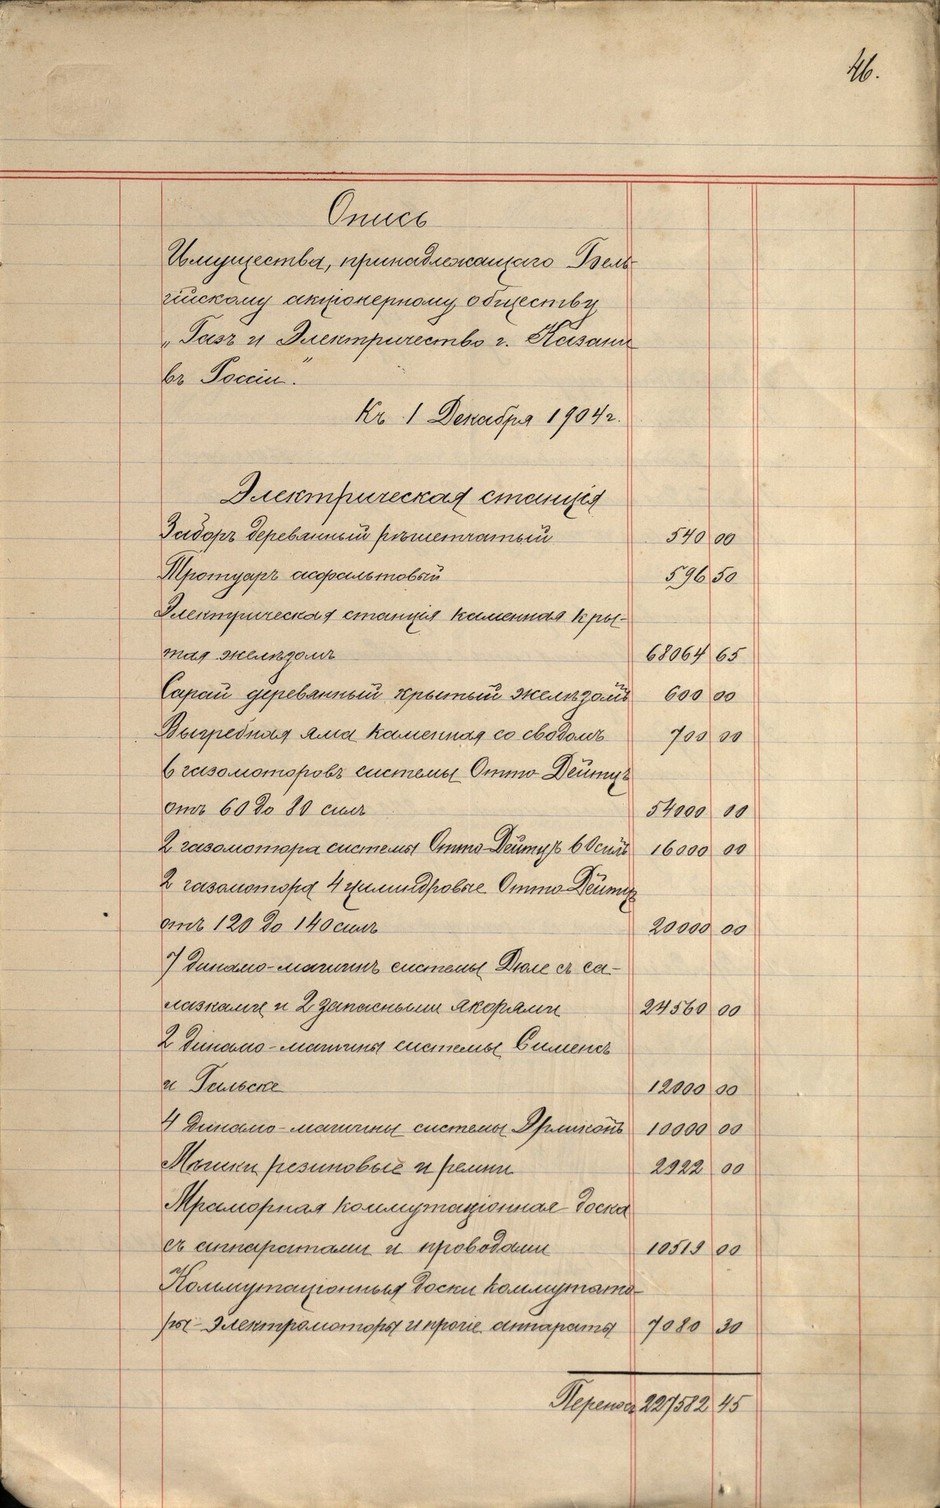 46.
Опись
Имущества, принадлежащаго Бель-
гійскому акціонерному обществу
„Газъ и Электричество г. Казани
въ Россіи."
Къ 1 Декабря 1904 г.
Электрическая станція
Заборъ деревянный рѣшетчатый 540 00
Тротуаръ асфальтовый 596 50
Электрическая станція каменная кры-
тая желѣзомъ 68064 65
Сарай деревянный крытый желѣзомъ 600 00
Выгребная яма каменная со сводомъ 700 00
6 газомоторовъ системы Отто-Дейтцъ
отъ 60 до 80 силъ 54000 00
2 газомотора системы Отто-Дейтцъ 60 силъ 16000 00
2 газомотора 4 цилиндровые Отто-Дейтцъ
отъ 120 до 140 силъ 20000 00
7 Динамо-машинъ системы Дюле съ са-
лазками и 2 запасными якорями 24560 00
2 Динамо-машины системы Сименсъ
и Гальске 12000 00
4 Динамо-машины системы Эрликонъ 10000 00
Мѣшки резиновые и ремни 2922 00
Мраморная коммутаціонная доска
съ аппаратами и проводами 10519 00
Коммутаціонныя доски коммутато-
ры-электромоторы и проч. аппараты 7080 30
Переносъ 227582 45